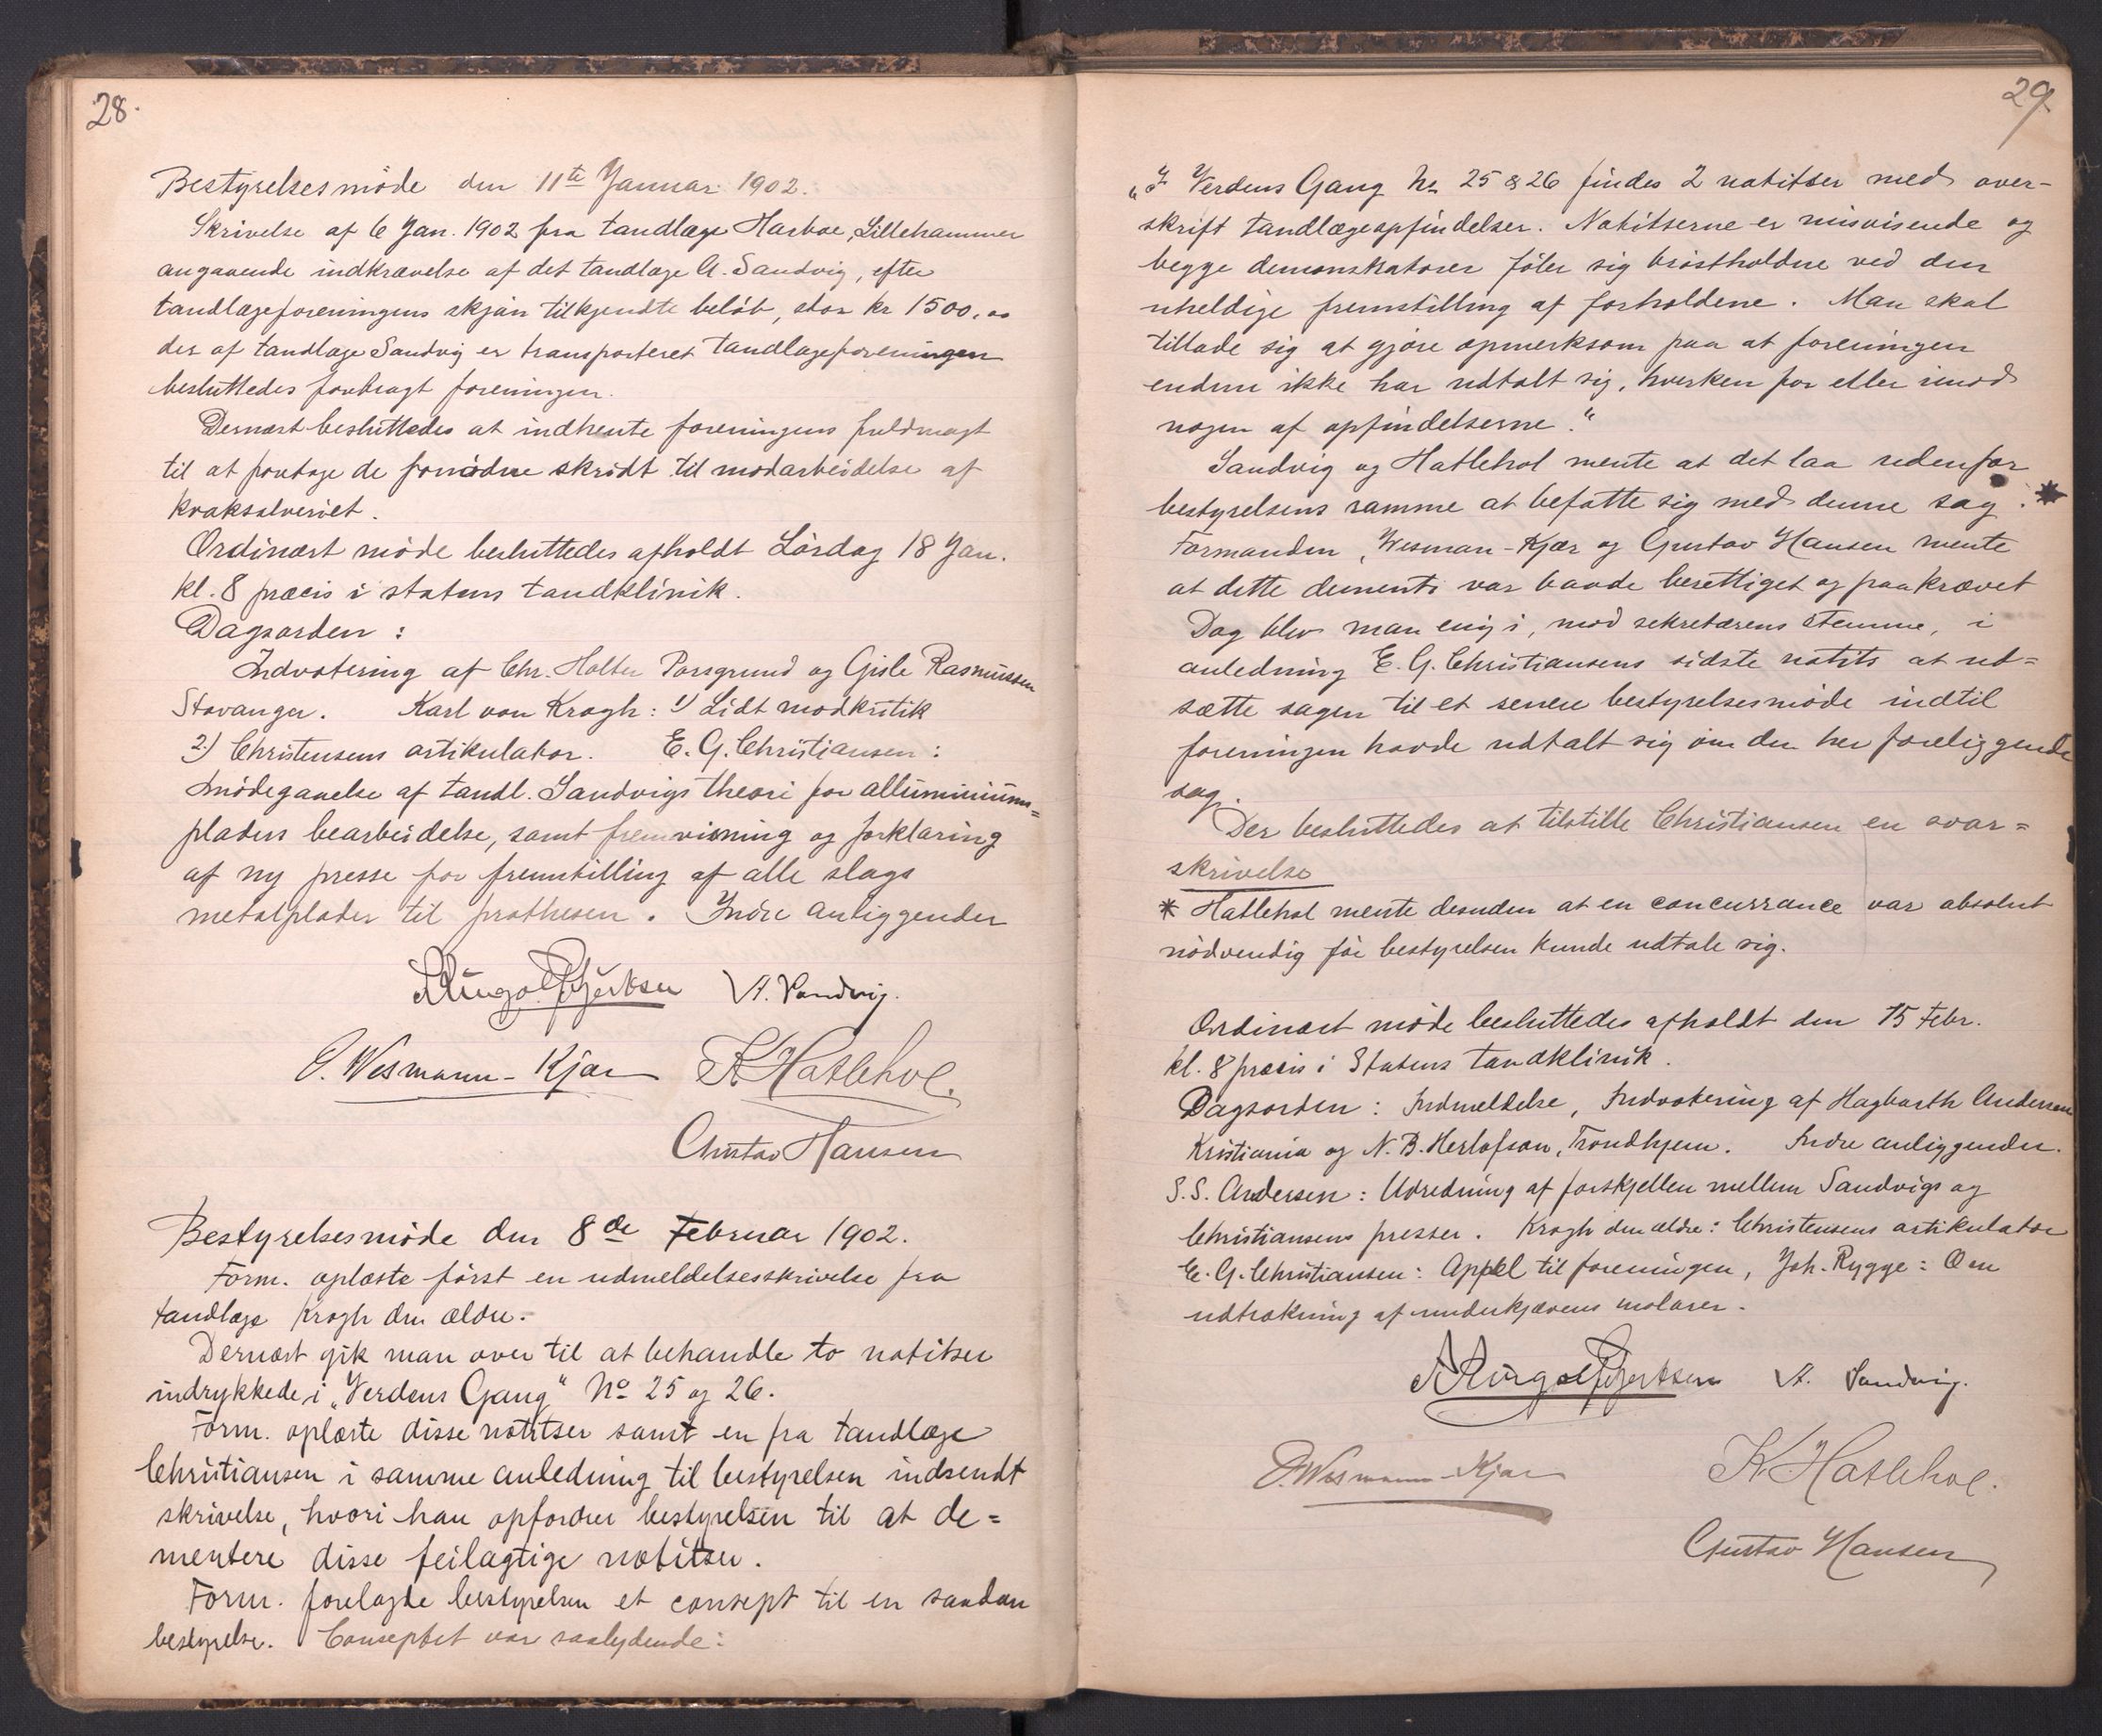 28.
Bestyrelsesmöde den 11te Januar 1902.
Skrivelse af 6 Jan. 1902 fra tandlæge Harboe, Lillehammer
angaaende indkrævelse af det tandlæge A. Sandvig, efter
tandlægeforeningens skjön tilkjendte belöb, stor kr 1500.00
der af tandlæge Sandvig er transporteret tandlægeforeningen
besluttedes forelagt foreningen.
Dernæst besluttedes at indhente foreningens fuldmagt
til at foretage de fornödne skridt til modarbeidelse af
kvaksalveriet.
Ordinært möde besluttedes afholdt Lördag 18 Jan.
kl. 8 præcis i statens tandklinik.
Dagsorden:
Indvotering af Chr. Holter Porsgrund og Gisle Rasmussen
Stavanger. Karl von Krogh: 1) Lidt modkritik
2) Christensens artikulator. E. G. Christiansen:
Imödegaaelse af tandl. Sandvigs theori for alluminiums=
pladers bearbeidelse, samt fremvisning og forklaring
af ny presse for fremstilling af alle slags
metalplader til prothesen. Indre anliggender
A. Sandvig.
O. Wesmann-Kjær K Hatlehol.
Gustav Hansen
Bestyrelsesmöde den 8de Februar 1902.
Form. oplæste först en udmeldelsesskrivelse fra
tandlæge Krogh den ældre.
Dernæst gik man over til at behandle to notitser
indrykkede i „Verdens Gang" No 25 og 26.
Form. oplæste disse notitser samt en fra tandlæge
Christiansen i samme anledning til bestyrelsen indsendt
skrivelse, hvori han opfordrer bestyrelsen til at de=
mentere disse feilagtige notitser.
Form. forelagde bestyrelsen et consept til en saadan
bestyrelse. Conseptet var saalydende:
29.
„I Verdens Gang No 25 & 26 findes 2 notitser med over-
skrift tandlægeopfindelser. Notitserne er misvisende og
begge demonstratorer föler sig bröstholdne ved den
uheldige fremstilling af forholdene. Man skal
tillade sig at gjöre opmerksom paa at foreningen
endnu ikke har udtalt sig, hverken for eller imod
nogen af opfindelserne."
Sandvig og Hatlehol mente at det laa udenfor
bestyrelsens ramme at befatte sig med denne sag. *
Formanden, Wesman-Kjær og Gustav Hansen mente
at dette dementi var baade berettiget og paakrævet
Dog blev man enig i, mod sekretærens stemme, i
anledning E. G. Christiansens sidste notits at ud=
sætte sagen til et senere bestyrelsesmöde indtil
foreningen havde udtalt sig om den her foreliggende
sag.
Der besluttedes at tilstille Christiansen en svar=
skrivelse
* Hatlehol mente desuden at en concurrance var absolut
nödvendig för bestyrelsen kunde udtale sig.
Ordinært möde besluttedes afholdt den 15 Febr.
kl. 8 præcis i Statens tandklinik.
Dagsorden: Indmeldelse, Indvotering af Hagbarth Andersen
Kristiania og N. B. Herlofson, Trondhjem. Indre anliggender.
S. S. Andersen: Udredning af forskjellen mellem Sandvigs og
Christiansens presser. Krogh den ældre: Christensens artikulator
E. G. Christiansen: Appel til foreningen, Joh. Rygge: Om
udtrækning af underkjævens molarer.
A. Sandvig.
O. Wesmann-Kjær K Hatlehol.
Gustav Hansen